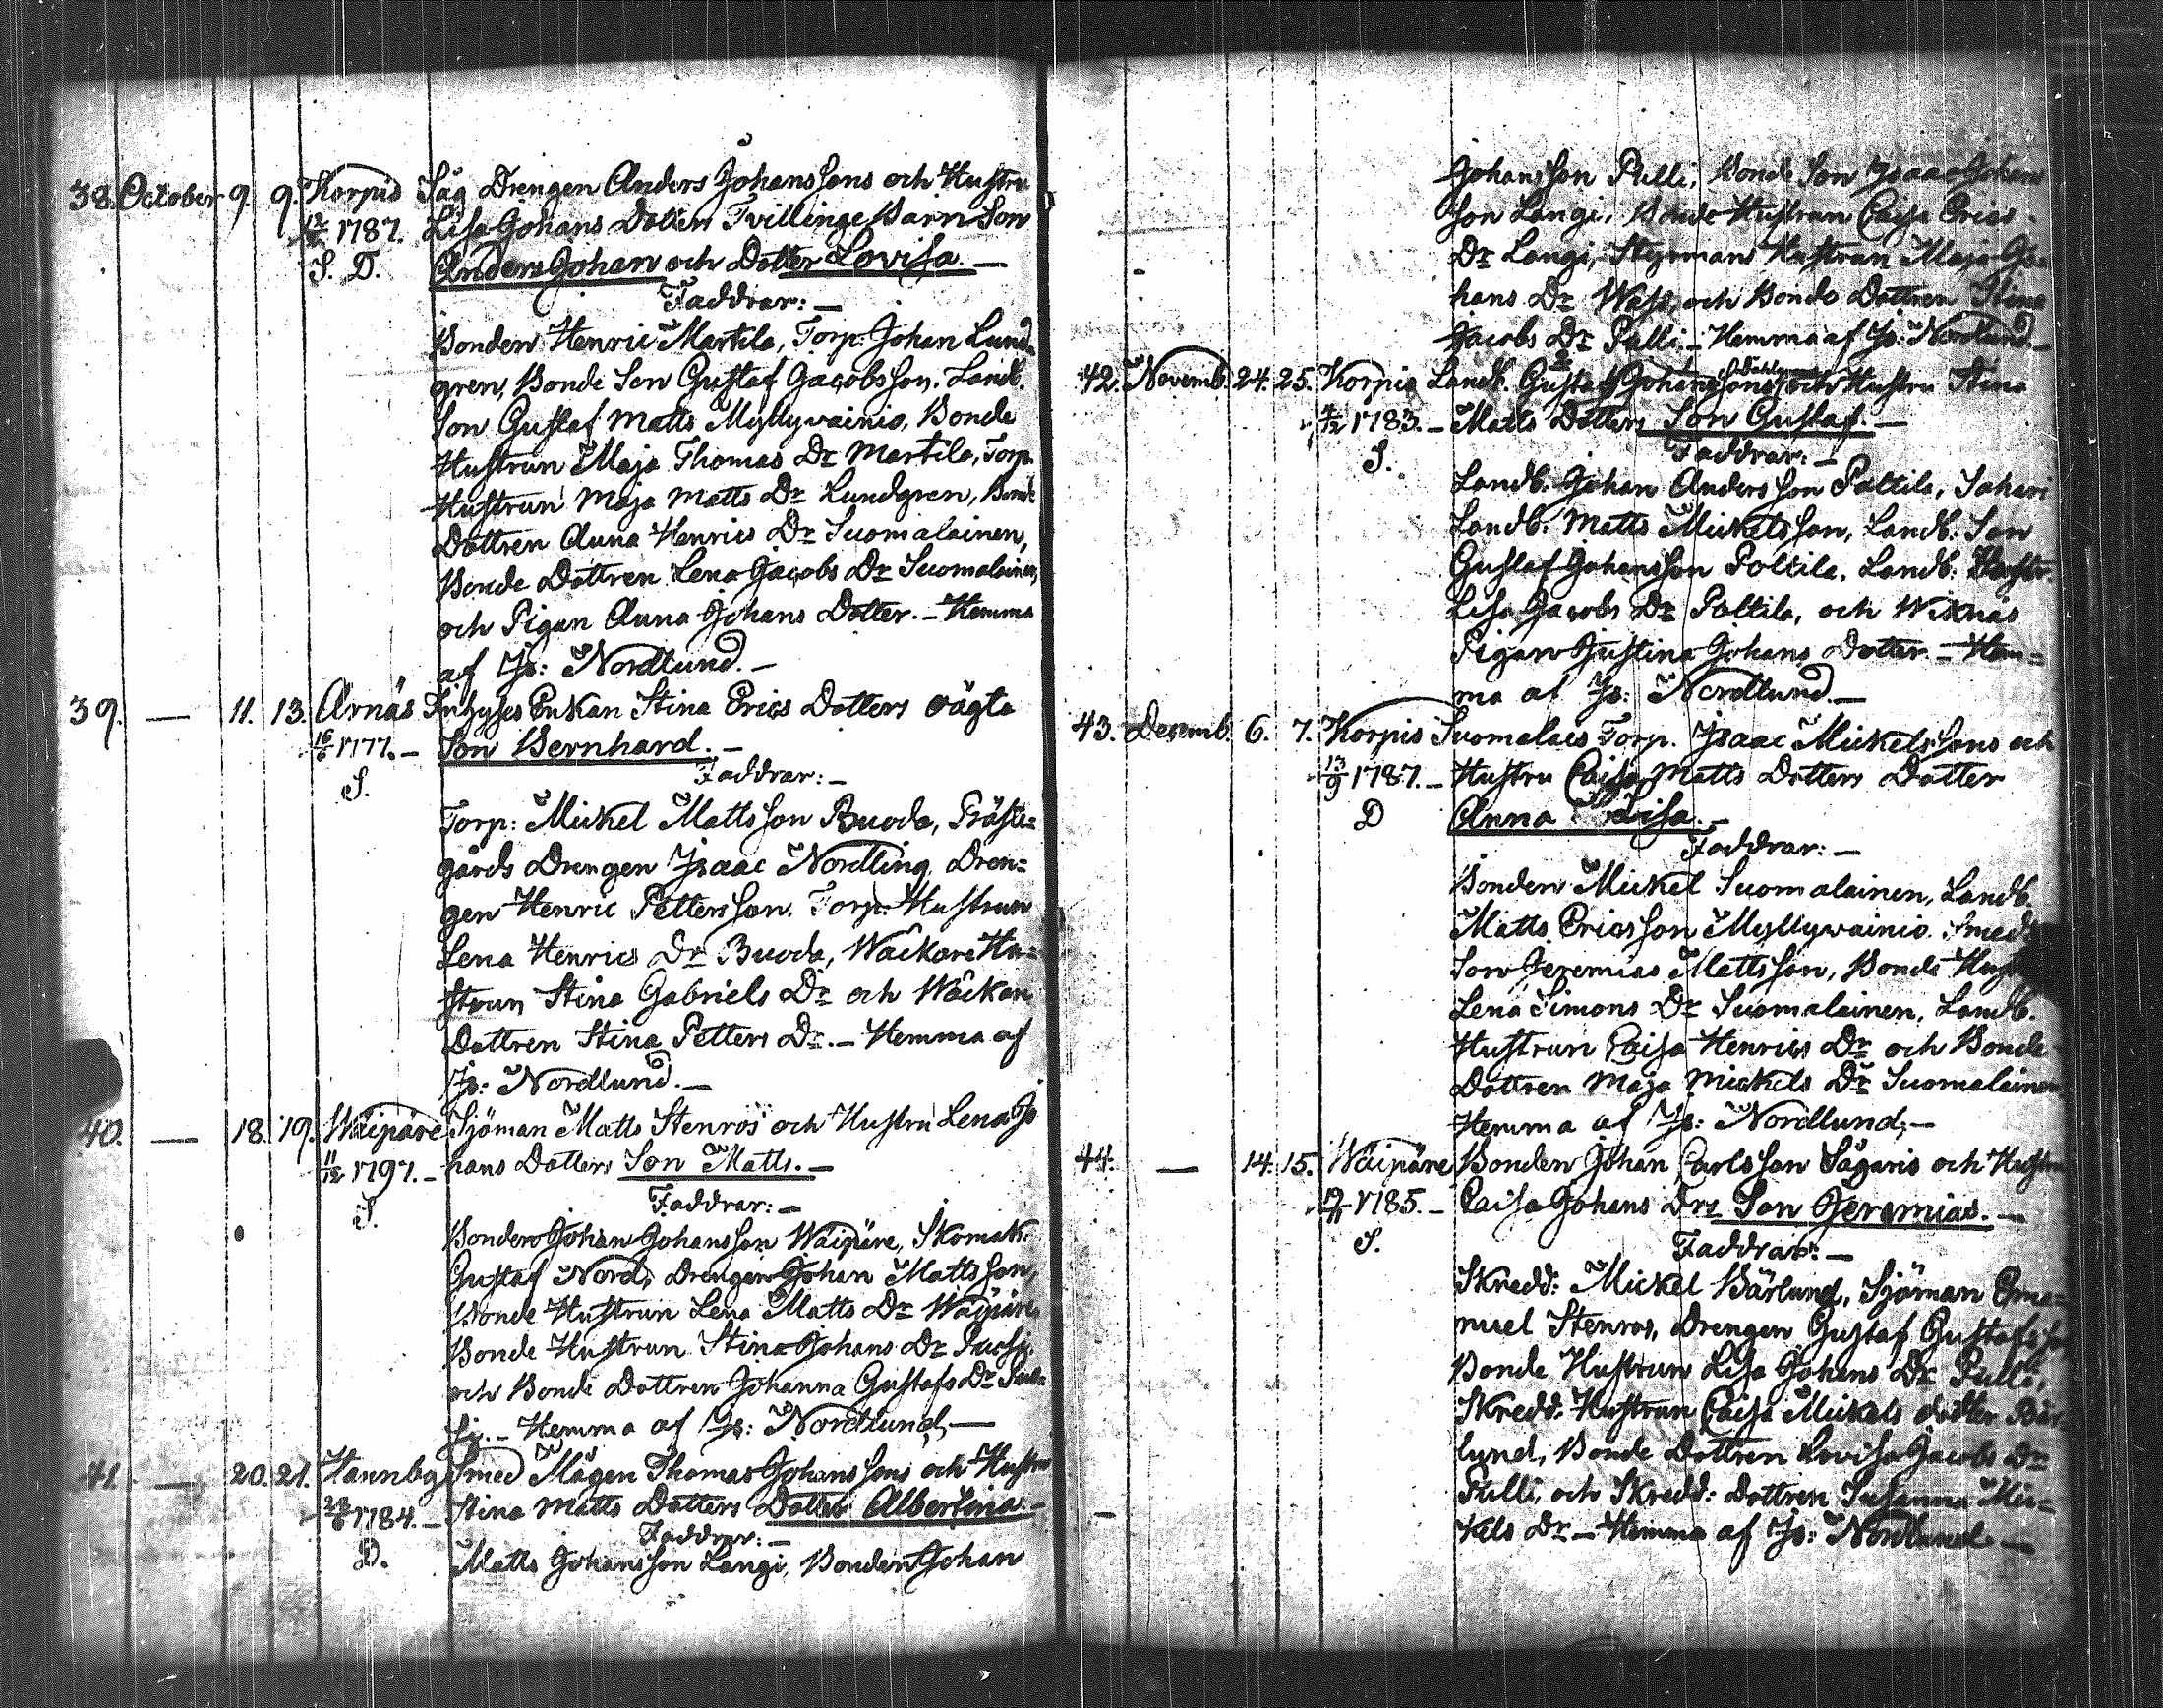 38. October 9. 9. Korpis Såg Drengen Anders Johanssons och Hustru
1787. Lisa Johans Dotters Tvillinge Barn Son
S. D. Anders Johan och Dotter Lovisa. —
Faddrar: —
Bonden Henric Martila, Torp. Johan Lund=
gren, Bonde Son Gustaf Jacobsson. Landb.
Son Gustaf Matts Myllyvainio, Bonde
Hustrun Maja Thomas Dr Martila, Torp.
Hustrun Maja Matts Dr Lundgren, Bonde
Dottren Anna Henrics Dr Suomalainen,
Bonde Dottren Lena Jacobs Dr Suomalainen,
och Pigan Anna Johans Dotter. – Hemma
af Js: Nordlund. —
39. — 11. 13. Arnäs Enkan Stina Erics Dotters oägta
16/6 1777. – Son Bernhard. —
S. Faddrar: —
Torp: Mickel Mattsson Buoda, Präste=
gårds Drengen Isaac Nordling, Dren=
gen Henric Pettersson. Torp. Hustrun
Lena Henrics Dr Buoda, Wäckare Hu=
strun Stina Gabriels Dr och Wäckare
Dottren Stina Petters Dr. – Hemma af
Js: Nordlund. —
40. — 18. 19. Waipäre Sjöman Matts Stenros och Hustru Lena Jo
11/12 1797. – hans Dotters Son Matts. —
S. Faddrar: —
Bonden Johan Johansson Waipäre, Skomak.
Gustaf Nord, Drengen Johan Mattsson,
Bonde Hustrun Lena Matts Dr Waipäre
Bonde Hustrun Stina Johans Dr
och Bonde Dottren Johanna Gustafs Dr
– Hemma af Js: Nordlund, —
41. — 20. 21. Hannby Smed Mågen Thomas Johanssons och Hustru
1784. – Stina Matts Dotters Dotter Albertina. –
D. Faddrar: —
Matts Johansson Langi, Bonden Johan
Johansson Pulli, Bonde Son Isaac Johans
son Langi, Bonde Hustrun Caisa Erics
Dr Langi, Styrmans Hustrun Maja Jo=
hans Dr Wass, och Bonde Dottren Stina
Jacobs Dr Pulli. – Hemma af Js: Nordlund —
42. Novemb. 24. 25. Korpis Landb. Gustaf Johanssons och Hustru Stina
4/12 1783. – Matts Dotters Son Gustaf. —
S. Faddrar: —
Landb. Johan Andersson Paltila, Sahari
Landb. Matts Mickelsson, Landb. Son
Gustaf Johansson Poltila, Landb. Hustr.
Lisa Jacobs Dr Paltila, och Wixnäs
Pigan Justina Johans Dotter. – Hem=
ma af Js: Nordlund. —
43. Decemb. 6. 7. Korpis Suomalais Torp. Isaac Mickelssons och
13/9 1787. – Hustru Caisa Matts Dotters Dotter
D Anna Lovisa. –
Faddrar: —
Bonden Mickel Suomalainen, Landb.
Matts Ericsson Myllyvainio. Smeds
Son Jeremias Mattsson, Bonde
Lena Simons Dr Suomalainen, Landb.
Hustrun Caisa Henrics Dr och Bonde
Dottren Maja Mickels Dr Suomalainen
Hemma af Js: Nordlund, —
44. — 14. 15. Waipäre Bonden Johan Carlsson Sågaris och Hustru
1785. – Caisa Johans Drs Son Jeremias. —
S. Faddrar: —
Skredd: Mickel Bärlund, Sjöman Ema=
nuel Stenros, Drengen Gustaf Gustafsson
Bonde Hustrun Lisa Johans Dr Pulli,
Skredd: Hustrun Caisa Mickels dotter Bär
lund, Bonde Dottren Lovisa Jacobs Dr
Pulli, och Skredd: dottren Susanna Mic=
kels Dr – Hemma af Js: Nordlund —